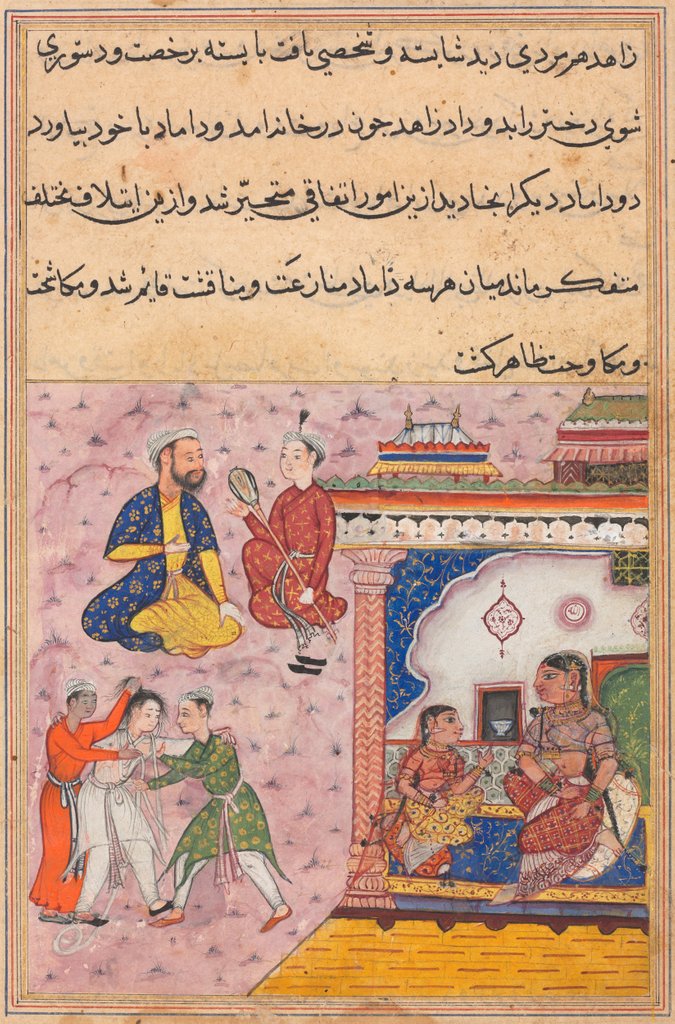 زاهد هر مردی دید شایسته و شخصی یافت بابسته برخصت و دستوری
شوی دختر را بدو داد زاهد چون در خانه امد و داماد با خود بیاورد
دو داماد دیکر انجا دید ازین امور اتفاقی متحیّر شد و ازین ایتلاف مختلف
متفکر ماند میان هر سه داماد منازعت و مناقشت قایم شد و مکاشحت
و مکاوحت ظاهر کشت
الله